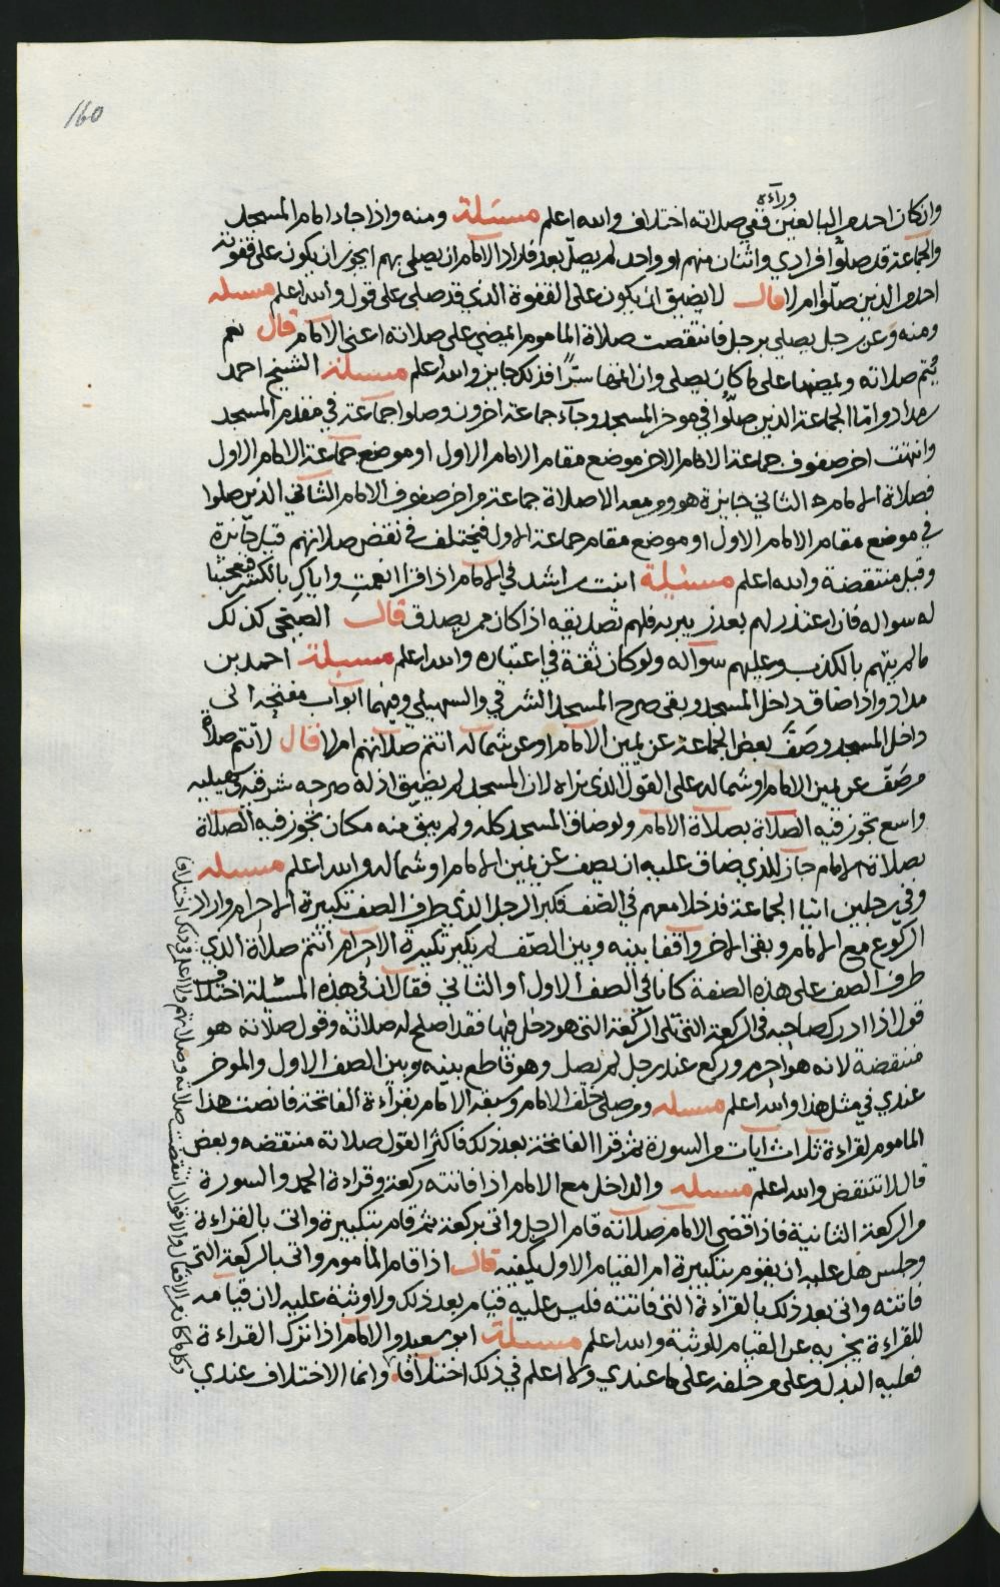 160
وراءه
وان كان احد من البالغين ففي صلاته اختلاف والله اعلم مسئلة ومنه واذا جاء امام المسجد
والجماعة قد صلوا فرادي واثنان منهم او واحد لم يصل بعد فاراد الامام ان يصلي بهم ايجوز ان يكون على قفوة
احد من الذين صلوا ام لا قال لا يضيق ان يكون على القفوة الذي قد صلى على قول والله اعلم مسئله
ومنه وعن رجل يصلي برجل فانتقضت صلاة الماموم ايمضي على صلاته اعني الامام قال نعم
يتم صلاته ويمضها على ما كان يصلي وان اتمها سرا فذلك جايز والله اعلم مسئلة الشيخ احمد
بن مداد واما الجماعة الذين صلوا في موخر المسجد وجاء جماعة اخرون وصلوا جماعة في مقدم المسجد
وانتهت اخر صفوف جماعة الامام الاخر موضع مقام الامام الاول او موضع جماعة الامام الاول
فصلاة الامام الثاني جايزة هو ومن معه الا صلاة جماعة من اخر صفوف الامام الثاني الذين صلوا
في موضع مقام الامام الاول او موضع مقام جماعة الاول فيختلف في نقض صلاتهم قيل جائزة
وقيل منتقضة والله اعلم مسئلة ابنت راشد في الامام اذا قرا انعمت واياك بالكسر فيحتبا
له سواله فان اعتذر لهم بعذر يبريه فلهم تصديقه اذا كان ممن يصدق قال الصبحي كذلك
ما لم يتهم بالكذب وعليهم سواله ولو كان ثقة في اعتباره والله اعلم مسئلة احمد بن
مداد واذا ضاق داخل المسجد وبقى صرح المسجد الشرقي والسهيلي وفيهما ابواب مفتحه الى
داخل المسجد وصف بعض الجماعة عن يمين الامام او عن شماله اتتم صلاتهم ام لا قال لا تتم صلاة
من صف عن يمين الامام او شماله على القول الذي نراه لان المسجد لم يضيق اذ له صرحه شرقيه سهيليه
واسع تجوز فيه الصلاة بصلاة الامام ولو ضاق المسجد كله ولم يبق منه مكان تجوز فيه الصلاة
بصلاة الامام جاز للذي ضاق عليه ان يصف عن يمين الامام او شماله والله اعلم مسئله
وفي رجلين اتيا الجماعة فدخلا معهم في الصف فكبر الرجل الذي طرف الصف تكبيرة الاحرام واراد
الركوع مع الامام وبقى الاخر واقفا بينه وبين الصف لم يكبر تكبيرة الاحرام اتتم صلاة الذي
طرف الصف على هذه الصفة كانا في الصف الاول أو الثاني فقال ان في هذه المسئلة اختلاف
قول اذا ادرك صاحبه في الركعة التي تلي الركعة التي هو دخل فيها فقد اصلح له صلاته وقول صلاته هو
منتقضة لانه هو احرم وركع عند رجل لم يصل وهو قاطع بينه وبين الصف الاول والموخر
عندي في مثل هذا والله اعلم مسئله ومن صلى خلف الامام وسبقه الامام بقراءة الفاتحة فانصت هذا
الماموم لقراءة ثلاث ايات من السورة ثم قرا الفاتحة بعد ذلك فاكثر القول صلاته منتقضه وبعض
قال لا تنتقض والله اعلم مسئله والداخل مع الامام اذا فاتته ركعة وقراءة الحمد والسورة
من الركعة الثانية فاذا قضى الامام صلاته قام الرجل واتى بركعة ثم قام بتكبيرة واتى بالقراءة
وجلس هل عليه ان يقوم بتكبيرة ام القيام الاول يكفيه قال اذا قام الماموم واتى بالركعة التي
فاتته واتى بعد ذلك بالقراءة التي فاتته فليس عليه قيام بعد ذلك ولا وثبة عليه لان قيامه
للقراءة يجزيه عن القيام للوثبة والله اعلم مسئلة ابو سعيد والامام اذا ترك القراءة
فعليه البدل وعلى من خلفه على ما عندي ولا اعلم في ذلك اختلافا وانما الاختلاف عندي
وكل ما كان من الافعال والاقوال انتقضت صلاته وصلاتهم ولا اعلم في ذلك اختلافا